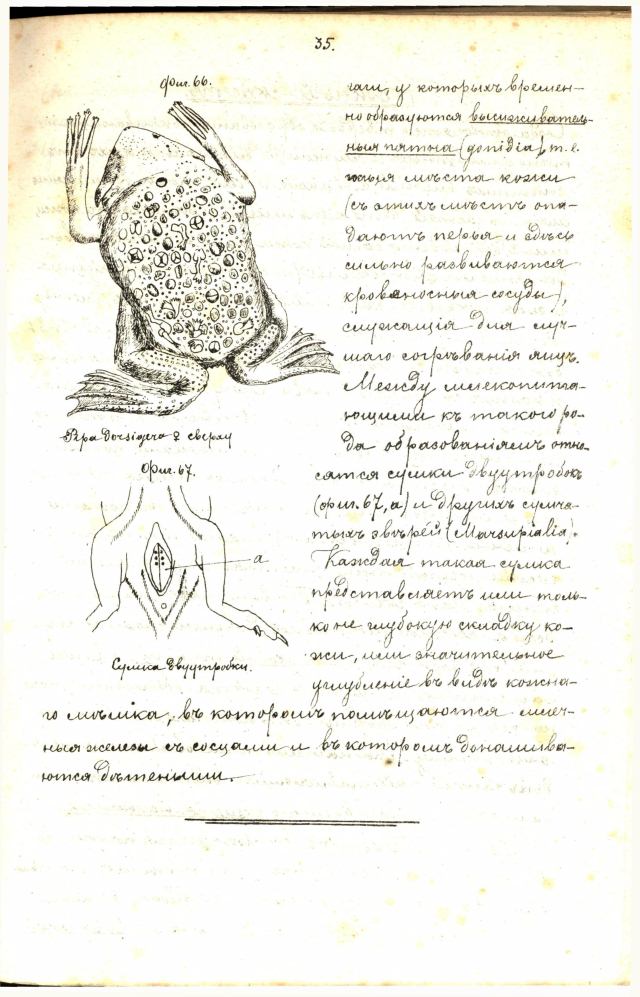 35.
Фиг. 66.
гаги, у которыхъ времен-
но образуются высиживатель-
ныя пятна (gonidia), т. е.
мѣста кожи
(съ этихъ мѣстъ опа-
даютъ перья и здѣсь
сильно развиваются
кровеносныя сосуды),
служащія для луч-
шаго согрѣванія яицъ.
Между млекопита-
ющими къ такого ро-
да образованіямъ отно-
сятся сумки двуутробокъ
(фиг. 67, a) и другихъ сумча-
тыхъ звѣрей (Marsupialia).
Каждая такая сумка
представляетъ или толь-
ко не глубокую складку ко-
жи, или значительное
углубленіе въ видѣ кожна-
го мѣшка, въ которомъ помѣщаются млеч-
ныя железы съ сосцами и въ которомъ донашива-
ются дѣтеныши.
Pipa dorsigera ♀ сверху
Фиг. 67.
a
Сумка двуутробки.